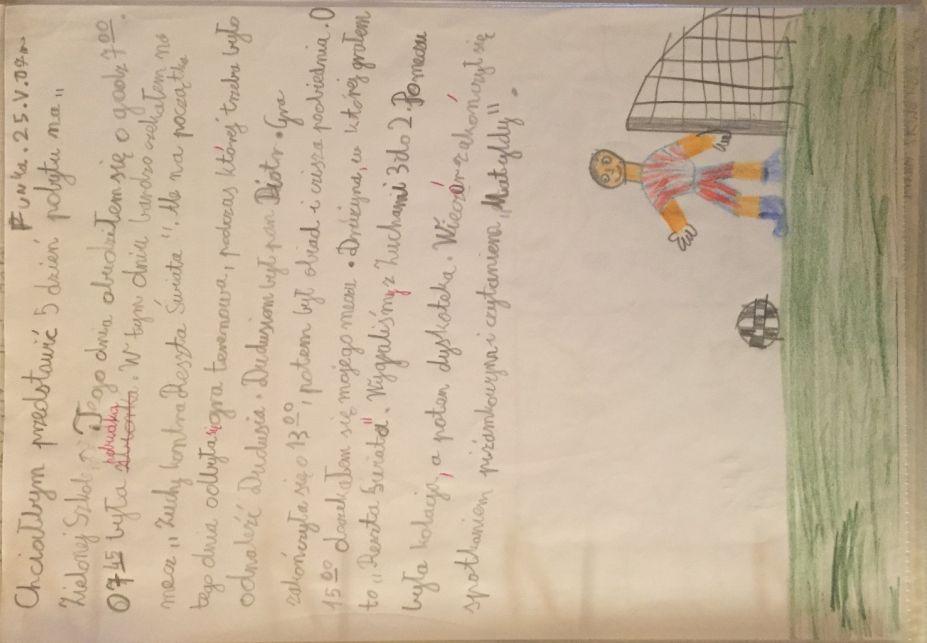 Funka.25.V.07r.
Chciałbym przedstawić 5 dzień pobytu na „
Zielonej Szkole”. Tego dnia obudziłem się o godz 7⁰⁰.
O 7⁴⁵ była pobudka zbiórka. W tym dniu bardzo czekałem na
mecz „Zuchy kontra Reszta Świata”. Ale na początku
tego dnia odbyła się gra terenowa, podczas której trzeba było
odnaleźć Dudusia. Dudusiom był pan Piotr. Gra
zakończyła się o 13⁰⁰, potem był obiad i cisza poobiednia. O
15⁰⁰ doczekałem się mojego meczu. Drużyna, w której grałem
to „Reszta Świata”. Wygraliśmy z Zuchami 3 do 2. Po meczu
była kolacja, a potem dyskoteka. Wieczór zakończył się
spotkaniem piżamkowym i czytaniem „Matyldy”.